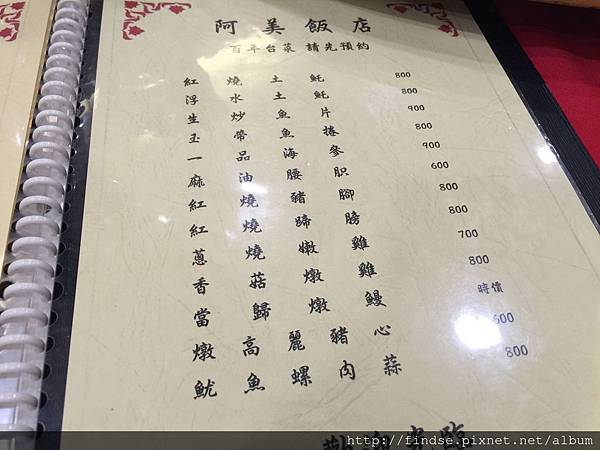 阿美飯店
百年台菜 請先預約
紅燒土魠 800
浮水土魠 800
生炒魚片 900
玉帶魚捲 800
一品海參 900
麻油腰 600
紅燒豬腳 800
紅燒蹄膀 800
蔥燒嫩雞 700
香菇燉雞 800
當歸燉鰻 時價
燉高麗豬心 600
魷魚螺肉蒜 800
歡迎光臨
http://findse.pixnet.net/album